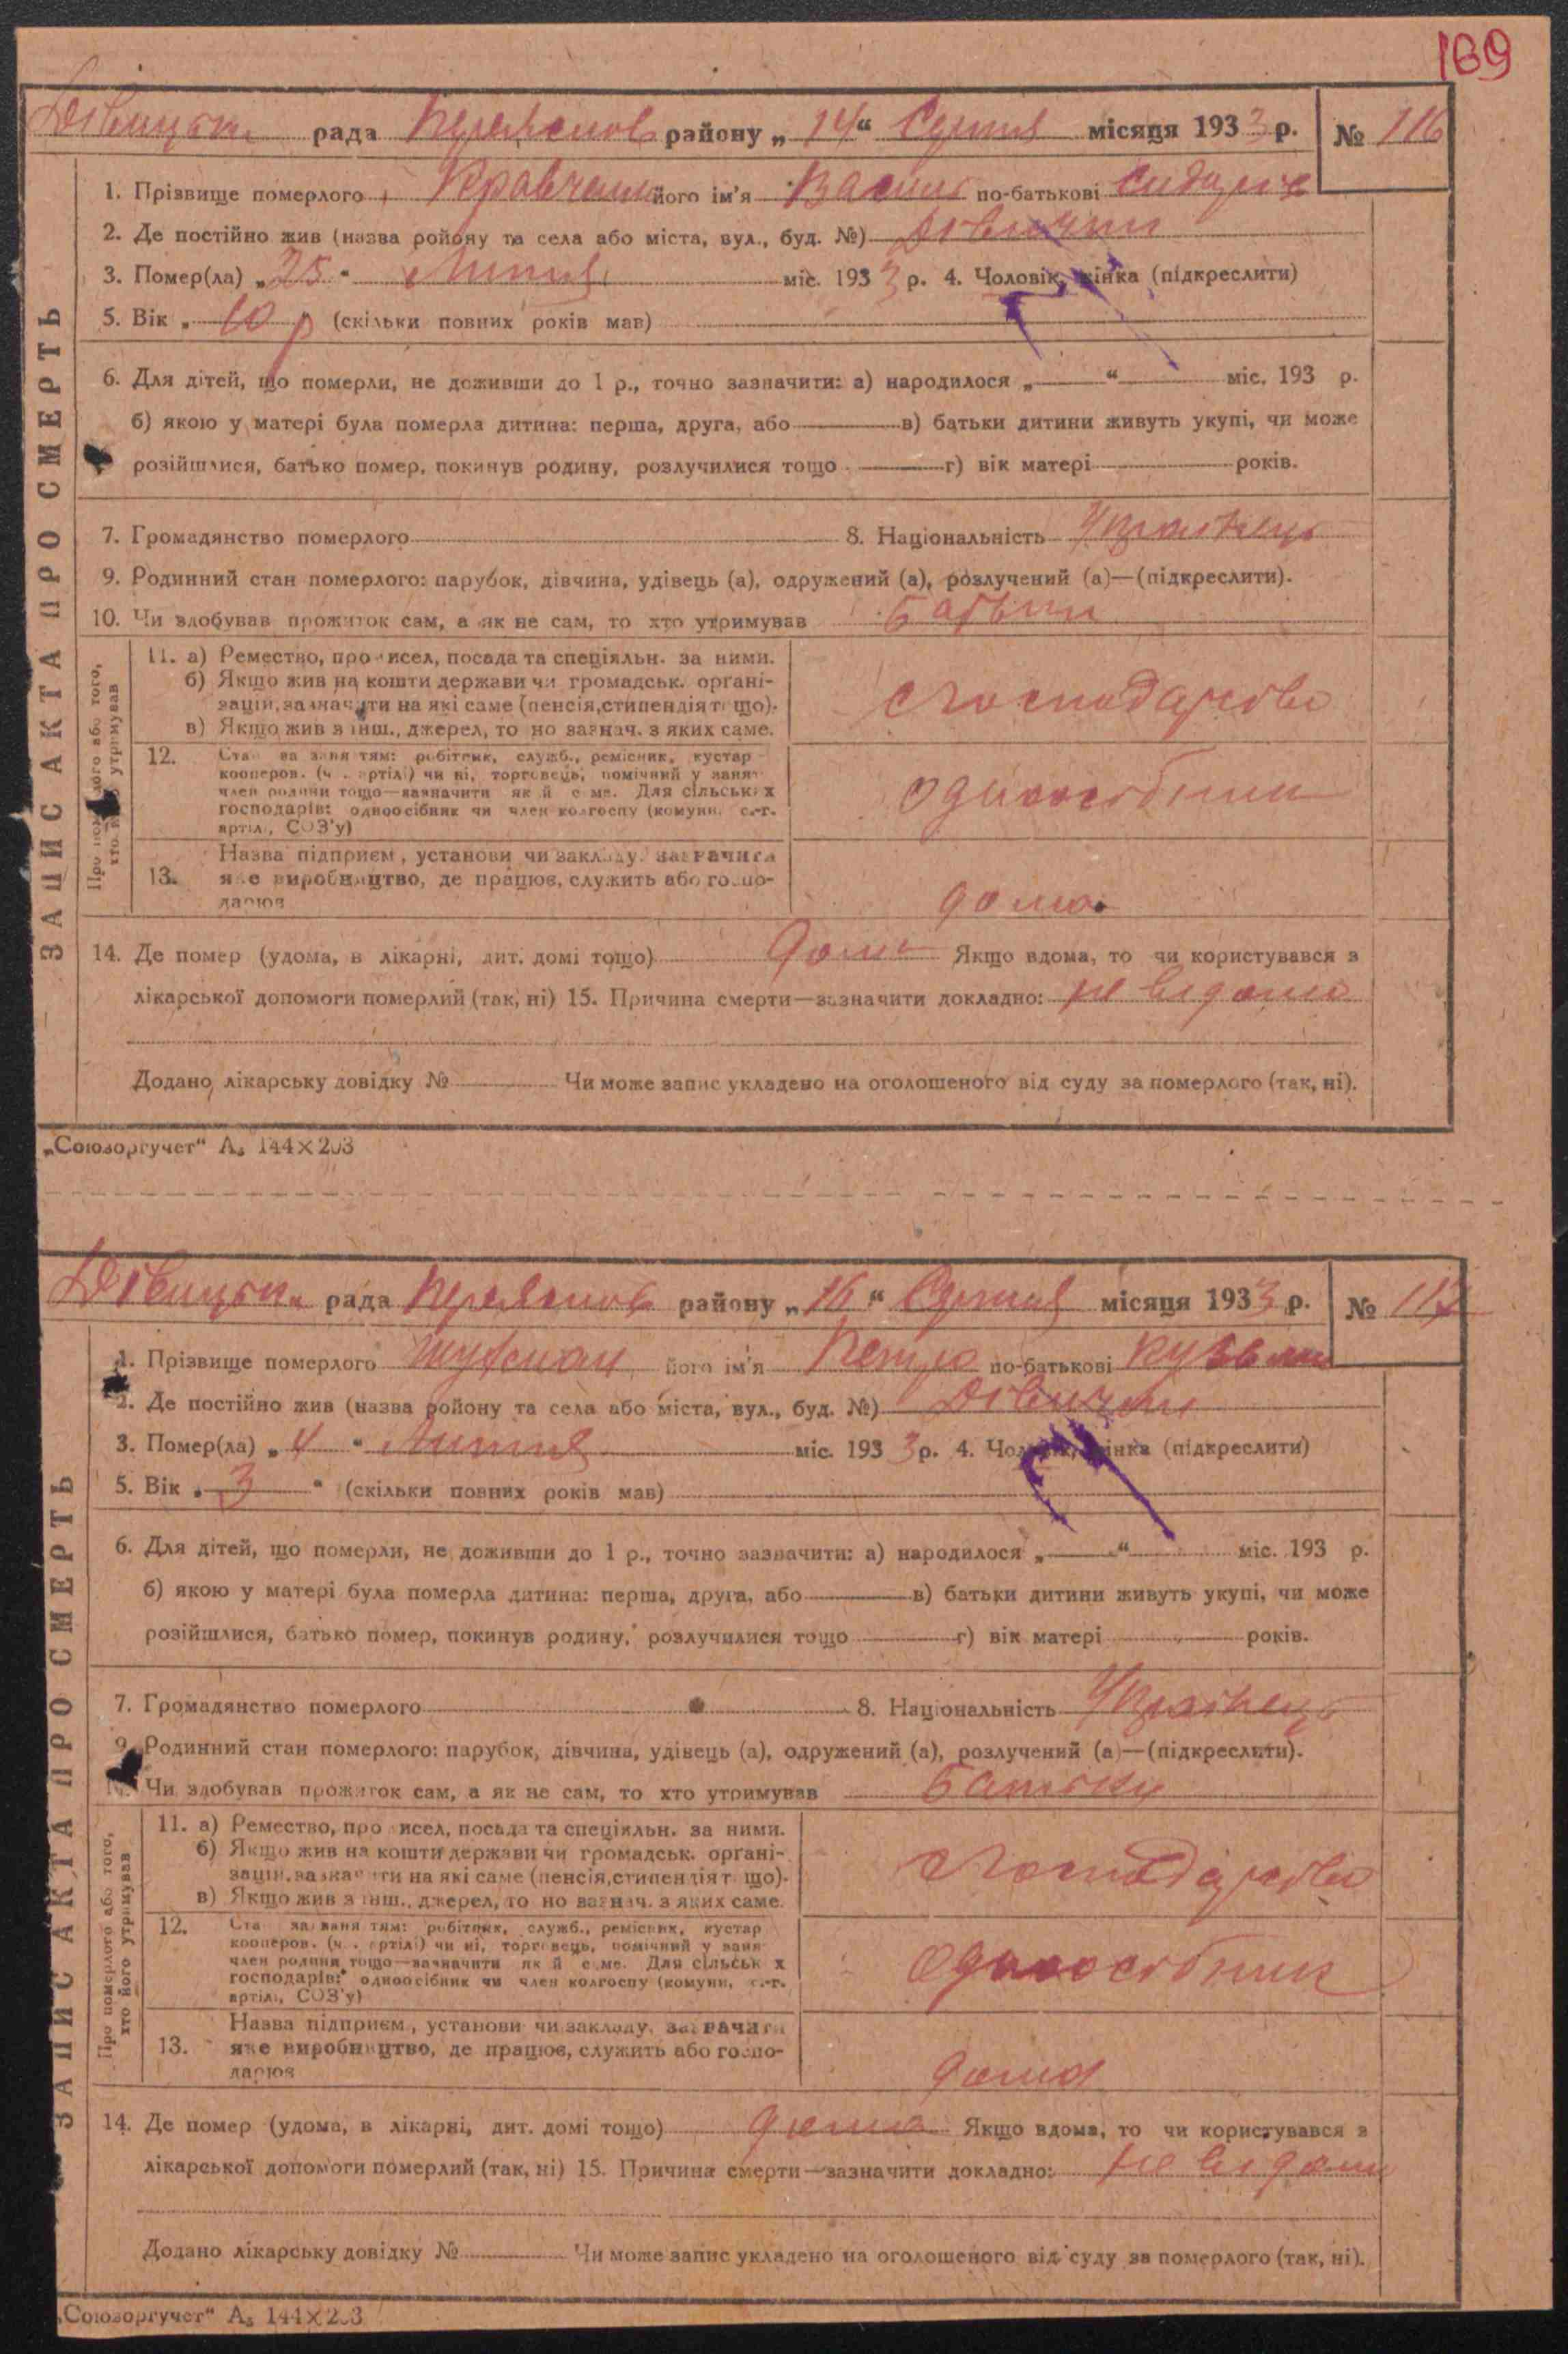 169
рада района „ 14 “ Серпня місяця 1933 р. № 116
1. Прізвище померлого Кравченко його ім'я Василь по-батькові
2. Де постійно жив (назва ройону та села або міста, вул., буд. №) Дівички
3. Помер(ла) „ 25 “ Липня міс. 1933 р. 4. Чоловік, жінка (підкреслити)
5. Вік „ 10 р (скільки повних років мав)
6. Для дітей, що померли, не доживши до 1 р., точно зазначити: а) народилося „ “ міс. 193 р.
б) якою у матері була померла дитина: перша, друга, або в) батьки дитини живуть укупі, чи може
розійшлися, батько помер, покинув родину, розлучилися тощо г) вік матері років.
7. Громадянство померлого 8. Національність Українець
9. Родинний стан померлого: парубок, дівчина, удівець (а), одружений (а), розлучений (а)—(підкреслити).
10. Чи здобував прожиток сам, а як не сам, то хто утримував Батьки
11. а) Ремество, промисел, посада та спеціяльн. за ними.
б) Якщо жив на кошти держави чи громадськ. органі-
зацій, зазначити на які саме (пенсія, стипендія тощо).
в) Якщо жив з інш., джерел, то но зазнач. з яких саме.
господарство
12. Стан за заняттям: робітник, служб., ремісник, кустар
кооперов. (ч. артілі) чи ні, торговець, помічний у занят
член родини тощо—зазначити як й саме. Для сільських
господарів: одноосібник чи член колгоспу (комуни, с.-г.
артілі, СОЗ'у)
одноосібник
Назва підприєм., установи чи закладу, зазначити
13. яке виробництво, де працює, служить або госпо-
дарює
дома
14. Де помер (удома, в лікарні, дит. домі тощо) дома Якщо вдома, то чи користувався з
лікарської допомоги померлий (так, ні) 15. Причина смерти—зазначити докладно: не відомо
Додано лікарську довідку № Чи може запис укладено на оголошеного від суду за померлого (так, ні).
ЗАПИС АКТА ПРО СМЕРТЬ
Про померлого або того,
хто його утримував
„Союзоргучет“ А₅ 144×203
рада району „ 16 “ Серпня місяця 1933 р. № 117
1. Прізвище померлого його ім'я Петро по-батькові Кузьм
2. Де постійно жив (назва ройону та села або міста, вул., буд. №) Дівички
3. Помер(ла) „ 4 “ Липня міс. 1933 р. 4. Чоловік, жінка (підкреслити)
5. Вік „ 3 “ (скільки повних років мав)
6. Для дітей, що померли, не доживши до 1 р., точно зазначити: а) народилося „ “ міс. 193 р.
б) якою у матері була померла дитина: перша, друга, або в) батьки дитини живуть укупі, чи може
розійшлися, батько помер, покинув родину, розлучилися тощо г) вік матері років.
7. Громадянство померлого 8. Національність Українець
9. Родинний стан померлого: парубок, дівчина, удівець (а), одружений (а), розлучений (а)—(підкреслити).
Чи здобував прожиток сам, а як не сам, то хто утримував Батьки
11. а) Ремество, промисел, посада та спеціяльн. за ними.
б) Якщо жив на кошти держави чи громадськ. органі-
зацій, зазначити на які саме (пенсія, стипендія тощо).
в) Якщо жив з інш., джерел, то но зазнач. з яких саме.
господарство
12. Стан за заняттям: робітник, служб., ремісник, кустар
кооперов. (ч. артілі) чи ні, торговець, помічний у занят
член родини тощо—зазначити як й саме. Для сільськ х
господарів: одноосібник чи член колгоспу (комуни, с.-г.
артілі, СОЗ'у)
одноосібник
Назва підприєм., установи чи закладу, зазначити
13. яке виробництво, де працює, служить або госпо-
дарює
дома
14. Де помер (удома, в лікарні, дит. домі тощо) дома Якщо вдома, то чи користувався з
лікарської допомоги померлий (так, ні) 15. Причина смерти—зазначити докладно: не відомо
Додано лікарську довідку № Чи може запис укладено на оголошеного від суду за померлого (так, ні).
ЗАПИС АКТА ПРО СМЕРТЬ
Про померлого або того,
хто його утримував
„Союзоргучет“ А₅ 144×203